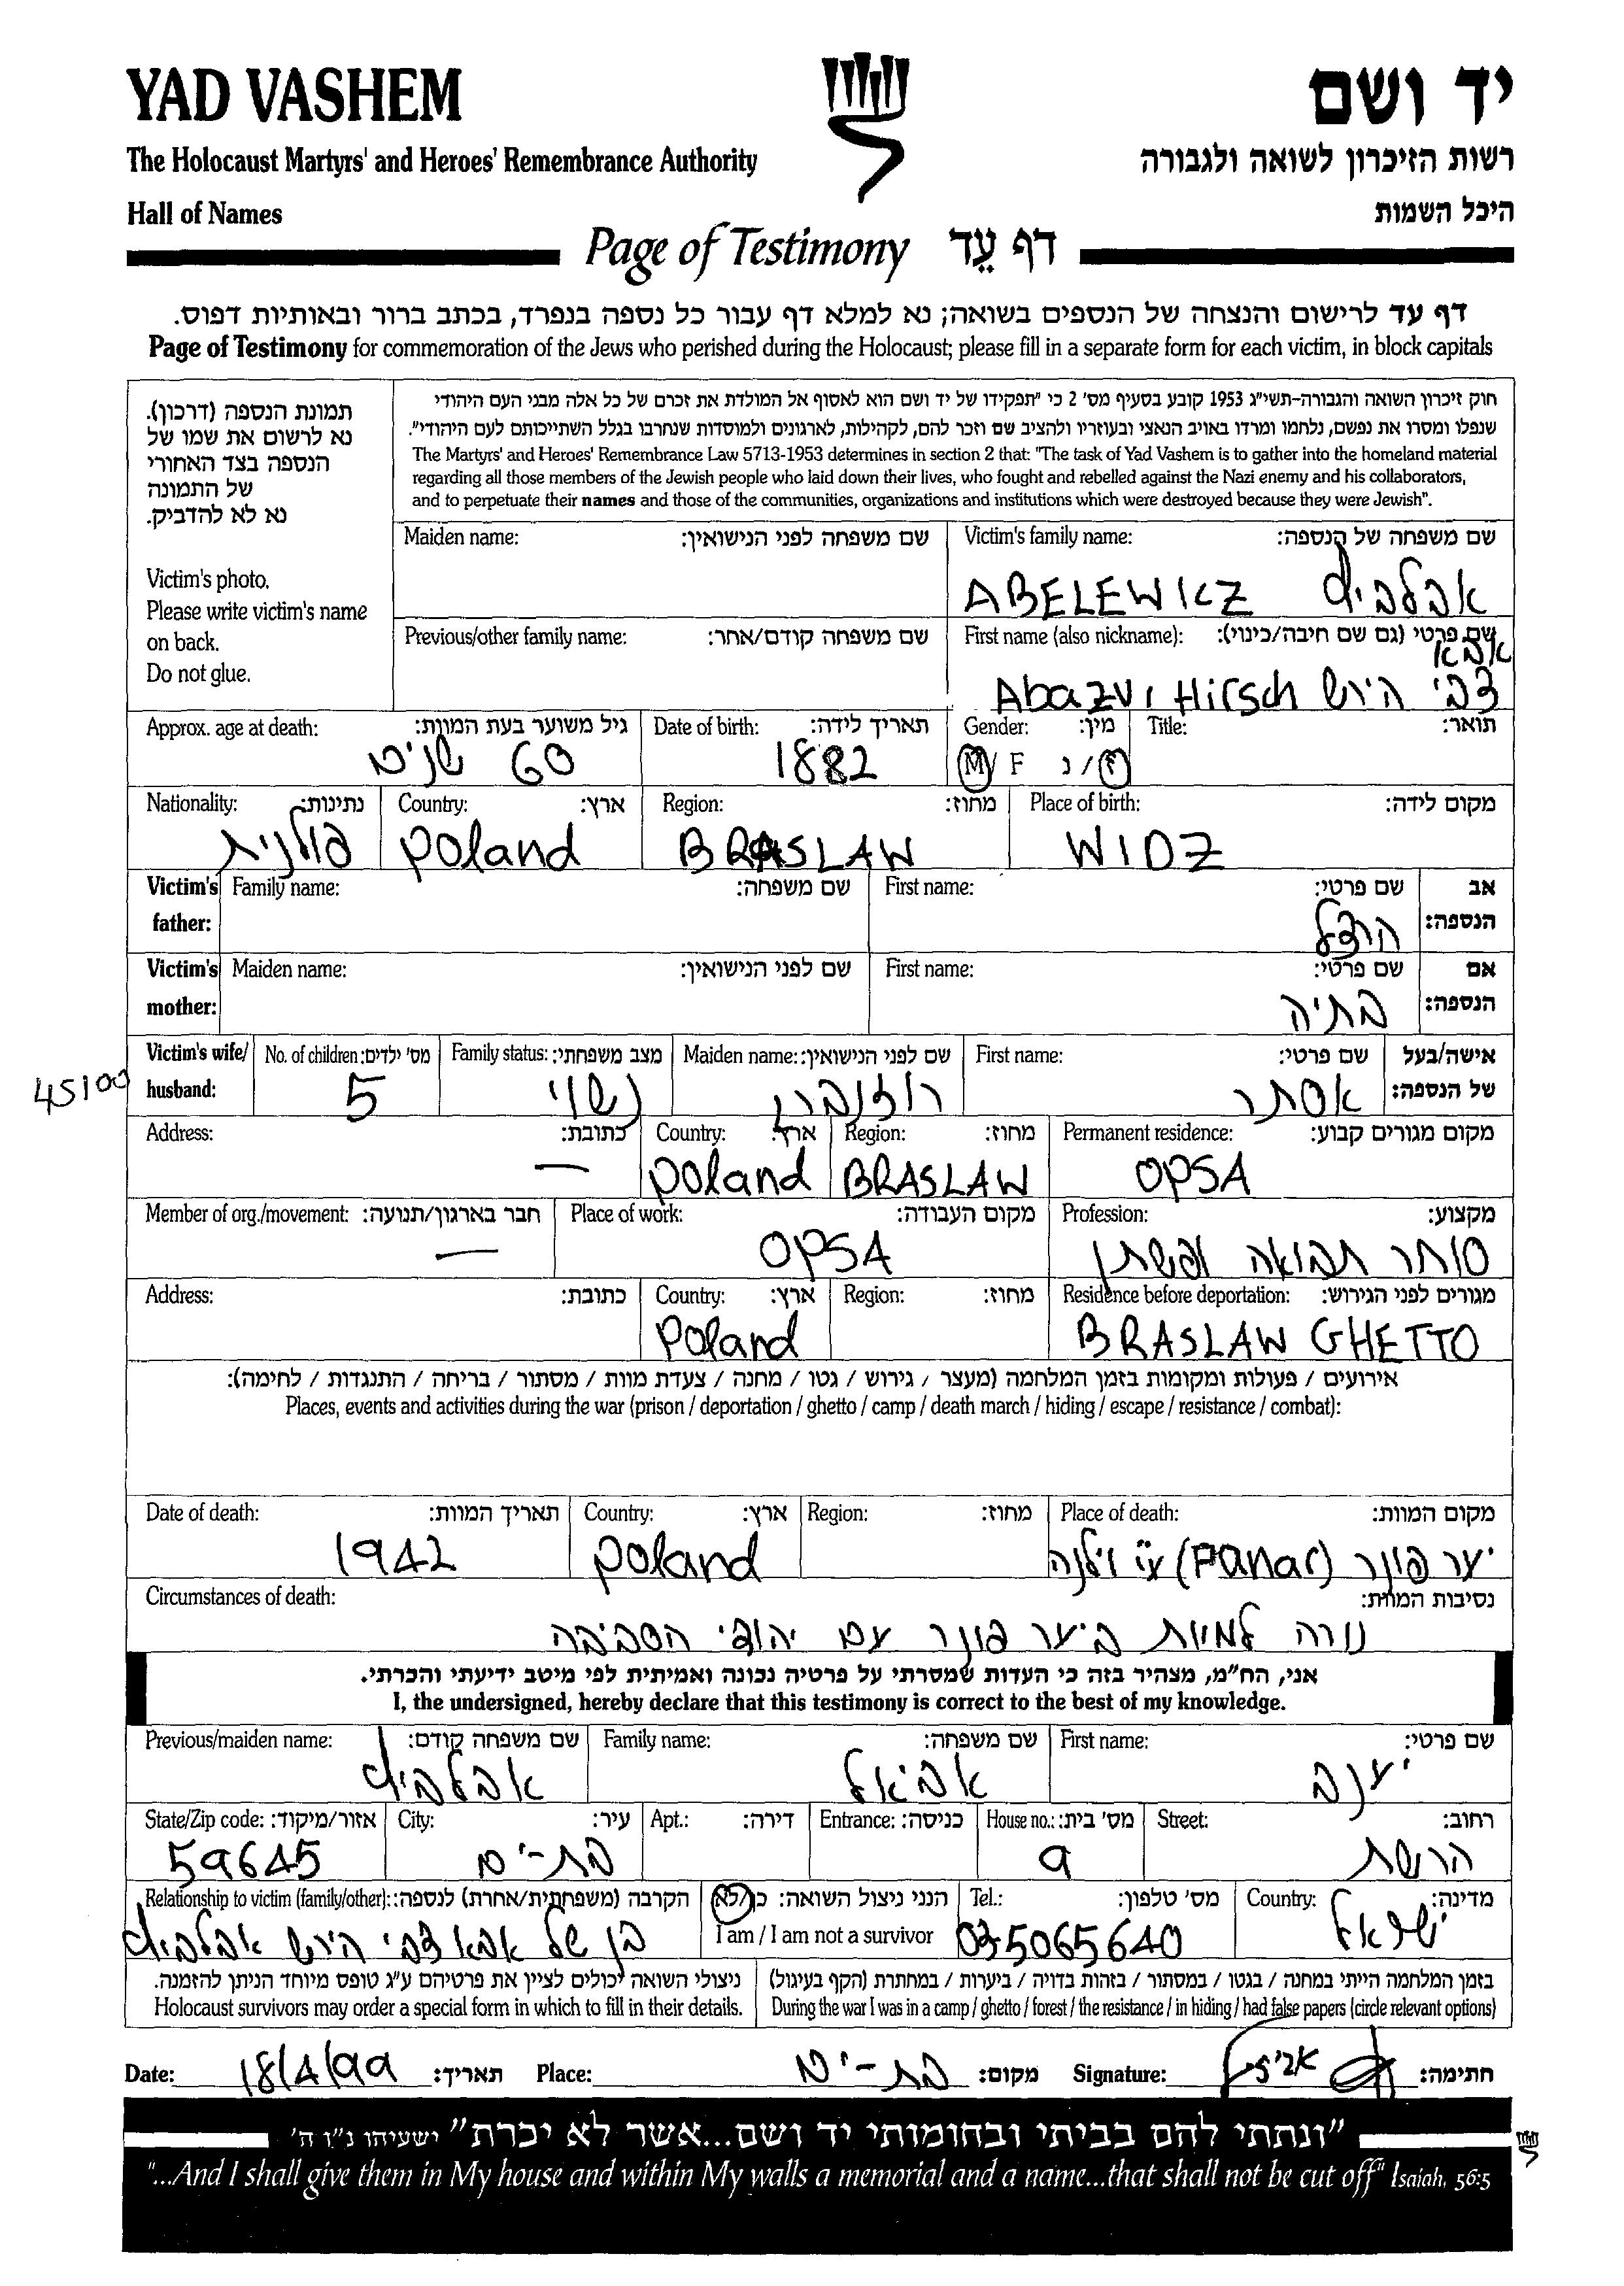 YAD VASHEM
יד ושם
The Holocaust Martyrs' and Heroes' Remembrance Authority
רשות הזיכרון לשואה ולגבורה
Hall of Names
היכל השמות
Page of Testimony דף עֵד
דף עד לרישום והנצחה של הנספים בשואה; נא למלא דף עבור כל נספה בנפרד, בכתב ברור ובאותיות דפוס.
Page of Testimony for commemoration of the Jews who perished during the Holocaust; please fill in a separate form for each victim, in block capitals
תמונת הנספה (דרכון).
נא לרשום את שמו של
הנספה בצד האחורי
של התמונה
נא לא להדביק.
Victim's photo.
Please write victim's name
on back.
Do not glue.
חוק זיכרון השואה והגבורה-תשי"ג 1953 קובע בסעיף מס' 2 כי "תפקידו של יד ושם הוא לאסוף אל המולדת את זכרם של כל אלה מבני העם היהודי
שנפלו ומסרו את נפשם, נלחמו ומרדו באויב הנאצי ובעוזריו ולהציב שם וזכר להם, לקהילות, לארגונים ולמוסדות שנחרבו בגלל השתייכותם לעם היהודי".
The Martyrs' and Heroes' Remembrance Law 5713-1953 determines in section 2 that: "The task of Yad Vashem is to gather into the homeland material
regarding all those members of the Jewish people who laid down their lives, who fought and rebelled against the Nazi enemy and his collaborators,
and to perpetuate their names and those of the communities, organizations and institutions which were destroyed because they were Jewish".
Maiden name: שם משפחה לפני הנישואין: Victim's family name: שם משפחה של הנספה:
ABELEWICZ אבלביץ
Previous/other family name: שם משפחה קודם/אחר: First name (also nickname): שם פרטי (גם שם חיבה/כינוי):
אבא
Abazvi Hirsch צבי הירש
Approx. age at death: גיל משוער בעת המוות: Date of birth: תאריך לידה: Gender: מין: Title: תואר:
60 שנים 1882 M / F ז / נ
Nationality: נתינות: Country: ארץ: Region: מחוז: Place of birth: מקום לידה:
פולנית poland BRASLAW WIDZ
Victim's father: Family name: שם משפחה: First name: שם פרטי: אב הנספה:
הרצל
Victim's mother: Maiden name: שם לפני הנישואין: First name: שם פרטי: אם הנספה:
בתיה
Victim's wife/ husband: No. of children: מס' ילדים: Family status: מצב משפחתי: Maiden name: שם לפני הנישואין: First name: שם פרטי: אישה/בעל של הנספה:
45100 5 נשוי אסתר
Address: כתובת: Country: ארץ: Region: מחוז: Permanent residence: מקום מגורים קבוע:
— poland BRASLAW OPSA
Member of org./movement: חבר בארגון/תנועה: Place of work: מקום העבודה: Profession: מקצוע:
— OPSA סוחר תבואה ופשתן
Address: כתובת: Country: ארץ: Region: מחוז: Residence before deportation: מגורים לפני הגירוש:
Poland BRASLAW GHETTO
אירועים / פעולות ומקומות בזמן המלחמה (מעצר / גירוש / גטו / מחנה / צעדת מוות / מסתור / בריחה / התנגדות / לחימה):
Places, events and activities during the war (prison / deportation / ghetto / camp / death march / hiding / escape / resistance / combat):
Date of death: תאריך המוות: Country: ארץ: Region: מחוז: Place of death: מקום המוות:
1942 poland יער פונר (Panar) ע"י וילנה
Circumstances of death: נסיבות המוות:
נורה למוות ביער פונר עם יהודי הסביבה
אני, הח"מ, מצהיר בזה כי העדות שמסרתי על פרטיה נכונה ואמיתית לפי מיטב ידיעתי והכרתי.
I, the undersigned, hereby declare that this testimony is correct to the best of my knowledge.
Previous/maiden name: שם משפחה קודם: Family name: שם משפחה: First name: שם פרטי:
אבלביץ אביאל יענב
State/Zip code: אזור/מיקוד: City: עיר: Apt.: דירה: Entrance: כניסה: House no.: מס' בית: Street: רחוב:
59645 בת-ים 9 הרשת
Relationship to victim (family/other): הקרבה (משפחתית/אחרת) לנספה: הנני ניצול השואה: כן/לא Tel.: מס' טלפון: Country: מדינה:
בן של אבא צבי הירש אבלביץ I am / I am not a survivor 035065640 ישראל
ניצולי השואה יכולים לציין את פרטיהם ע"ג טופס מיוחד הניתן להזמנה.
Holocaust survivors may order a special form in which to fill in their details.
בזמן המלחמה הייתי במחנה / בגטו / במסתור / בזהות בדויה / ביערות / במחתרת (הקף בעיגול)
During the war I was in a camp / ghetto / forest / the resistance / in hiding / had false papers (circle relevant options)
Date: 18/4/99 תאריך: Place: בת-ים מקום: Signature: חתימה:
"ונתתי להם בביתי ובחומותי יד ושם...אשר לא יכרת" ישעיהו נ"ו ה'
"...And I shall give them in My house and within My walls a memorial and a name...that shall not be cut off" Isaiah, 56:5